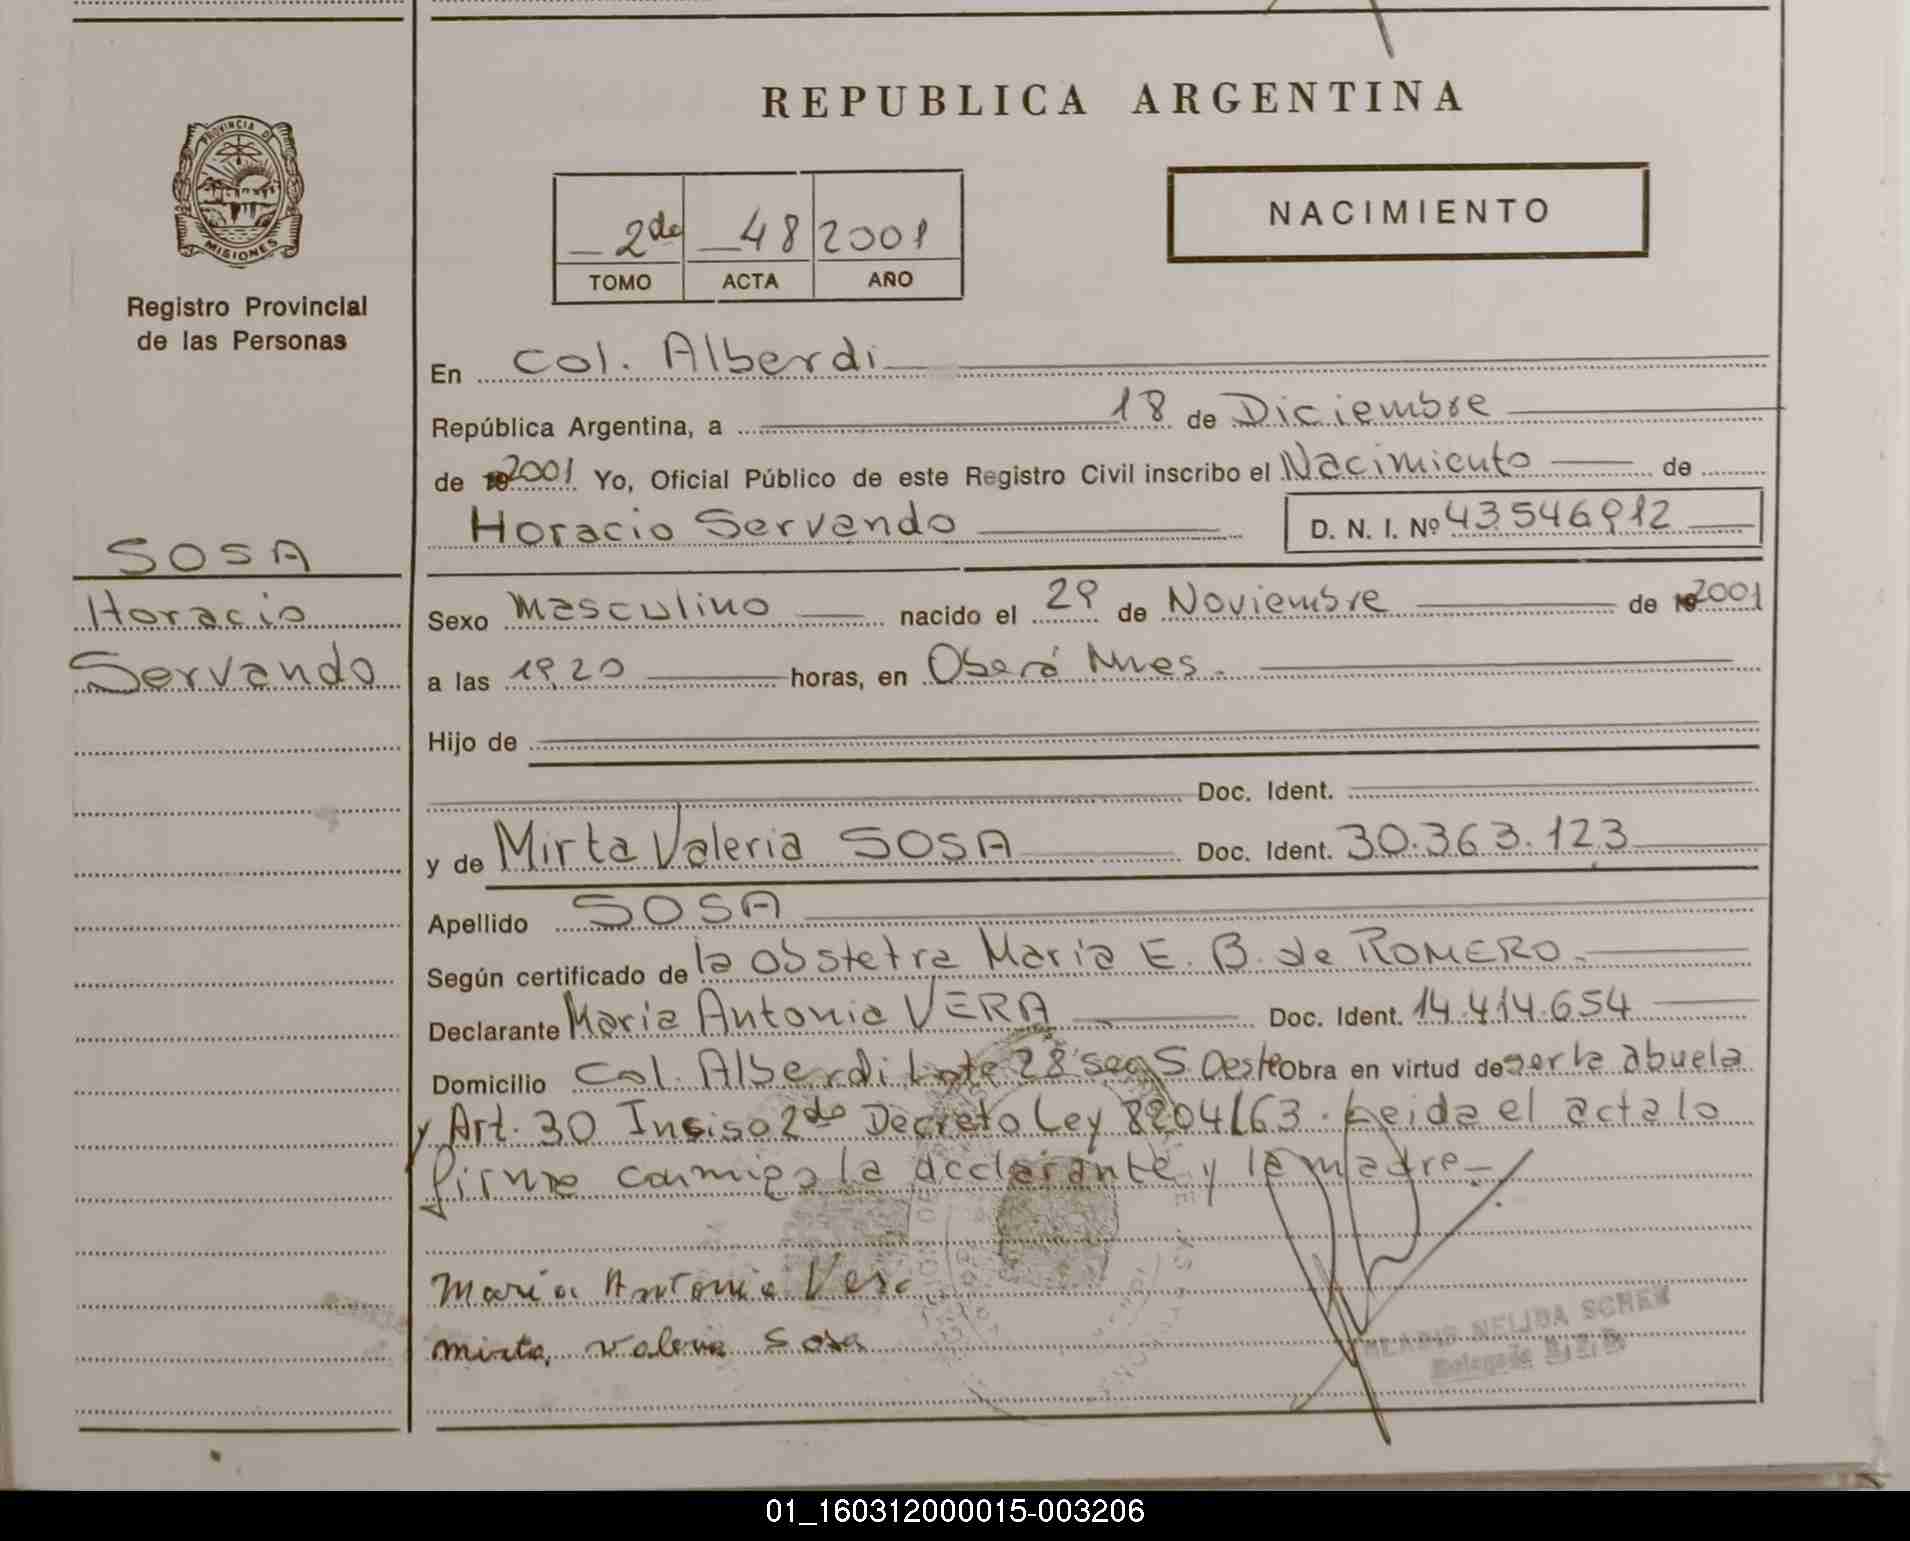 REPUBLICA ARGENTINA
PROVINCIA DE
MISIONES
Registro Provincial
de las Personas
2do 48 2001
TOMO ACTA AÑO
NACIMIENTO
En Col. Alberdi
República Argentina, a 18 de Diciembre
de 2001 Yo, Oficial Público de este Registro Civil inscribo el Nacimiento de
Horacio Servando D. N. I. Nº 43.546912
SOSA
Horacio
Servando
Sexo Masculino nacido el 29 de Noviembre de 2001
a las 19,20 horas, en Oberá Mnes.
Hijo de
Doc. Ident.
y de Mirta Valeria SOSA Doc. Ident. 30.363.123
Apellido SOSA
Según certificado de la obstetra María E. B. de ROMERO.
Declarante María Antonia VERA Doc. Ident. 14.414.654
Domicilio Col. Alberdi Lote 28 sec S Oeste Obra en virtud de ser la abuela
y Art. 30 Inciso 2do Decreto Ley 8204/63. Leida el acta lo
firma conmigo la declarante y la madre.
Maria Antonia Vera
Mirta Valeria Sosa
NELIDA SCHEM
Delegada
01_160312000015-003206